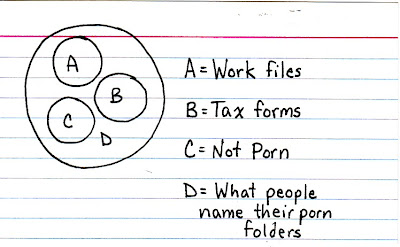 A
B
C
D
A = Work files
B = Tax forms
C = Not Porn
D = What people
name their porn
folders